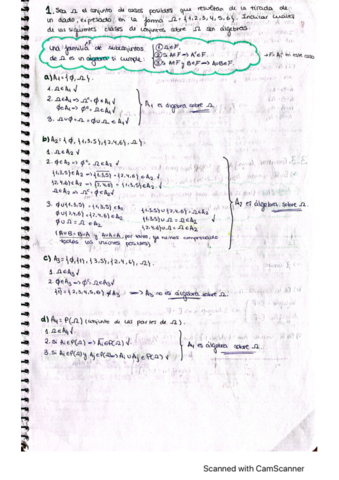 1. Sea Ω el conjunto de casos posibles que resultan de la tirada de
un dado, expresado en la forma Ω = {1,2,3,4,5,6}. Indicar cuales
de las siguientes clases de conjuntos sobre Ω son álgebras
Una familia de subconjuntos
de Ω es un álgebra si cumple
① Ω∈F.
② Si A∈F ⇒ Aᶜ∈F.
③ Si A∈F y B∈F ⇒ A∪B∈F.
en este caso
a) A₁ = {∅, Ω}.
1. Ω∈A₁ ✓
2. Ω∈A₁ ⇒ Ωᶜ = ∅∈A₁ ✓
∅∈A₁ ⇒ ∅ᶜ = Ω∈A₁ ✓
3. Ω∪∅ = ∅∪Ω = Ω∈A₁ ✓
A₁ es álgebra sobre Ω.
b) A₂ = {∅, {1,3,5}, {2,4,6}, Ω}.
1. Ω∈A₂ ✓
2. ∅∈A₂ ⇒ ∅ᶜ = Ω∈A₂ ✓
{1,3,5}∈A₂ ⇒ {1,3,5}ᶜ = {2,4,6}∈A₂ ✓
{2,4,6}∈A₂ ⇒ {2,4,6}ᶜ = {1,3,5}∈A₂ ✓
Ω∈A₂ ⇒ Ωᶜ = ∅∈A₂ ✓
3. ∅∪{1,3,5} = {1,3,5}∈A₂
∅∪{2,4,6} = {2,4,6}∈A₂
∅∪Ω = Ω∈A₂
{1,3,5}∪{2,4,6} = Ω∈A₂
{1,3,5}∪Ω = Ω∈A₂
{2,4,6}∪Ω = Ω∈A₂
(A∪B = B∪A y A∪A = A, por tanto, ya hemos comprobado
todas las uniones posibles)
A₂ es álgebra sobre Ω.
c) A₃ = {∅, {1}, {3,5}, {2,4,6}, Ω}
1. Ω∈A₃ ✓
2. ∅∈A₃ ⇒ ∅ᶜ = Ω∈A₃ ✓
{1}ᶜ = {2,3,4,5,6} ∉ A₃ ⇒ A₃ no es álgebra sobre Ω.
d) A₄ = P(Ω) (conjunto de las partes de Ω).
1. Ω∈P(Ω) ✓
2. Si Aᵢ∈P(Ω) ⇒ Aᵢᶜ∈P(Ω) ✓
3. Si Aᵢ∈P(Ω) y Aⱼ∈P(Ω) ⇒ Aᵢ∪Aⱼ∈P(Ω) ✓
A₄ es álgebra sobre Ω.
Scanned with CamScanner